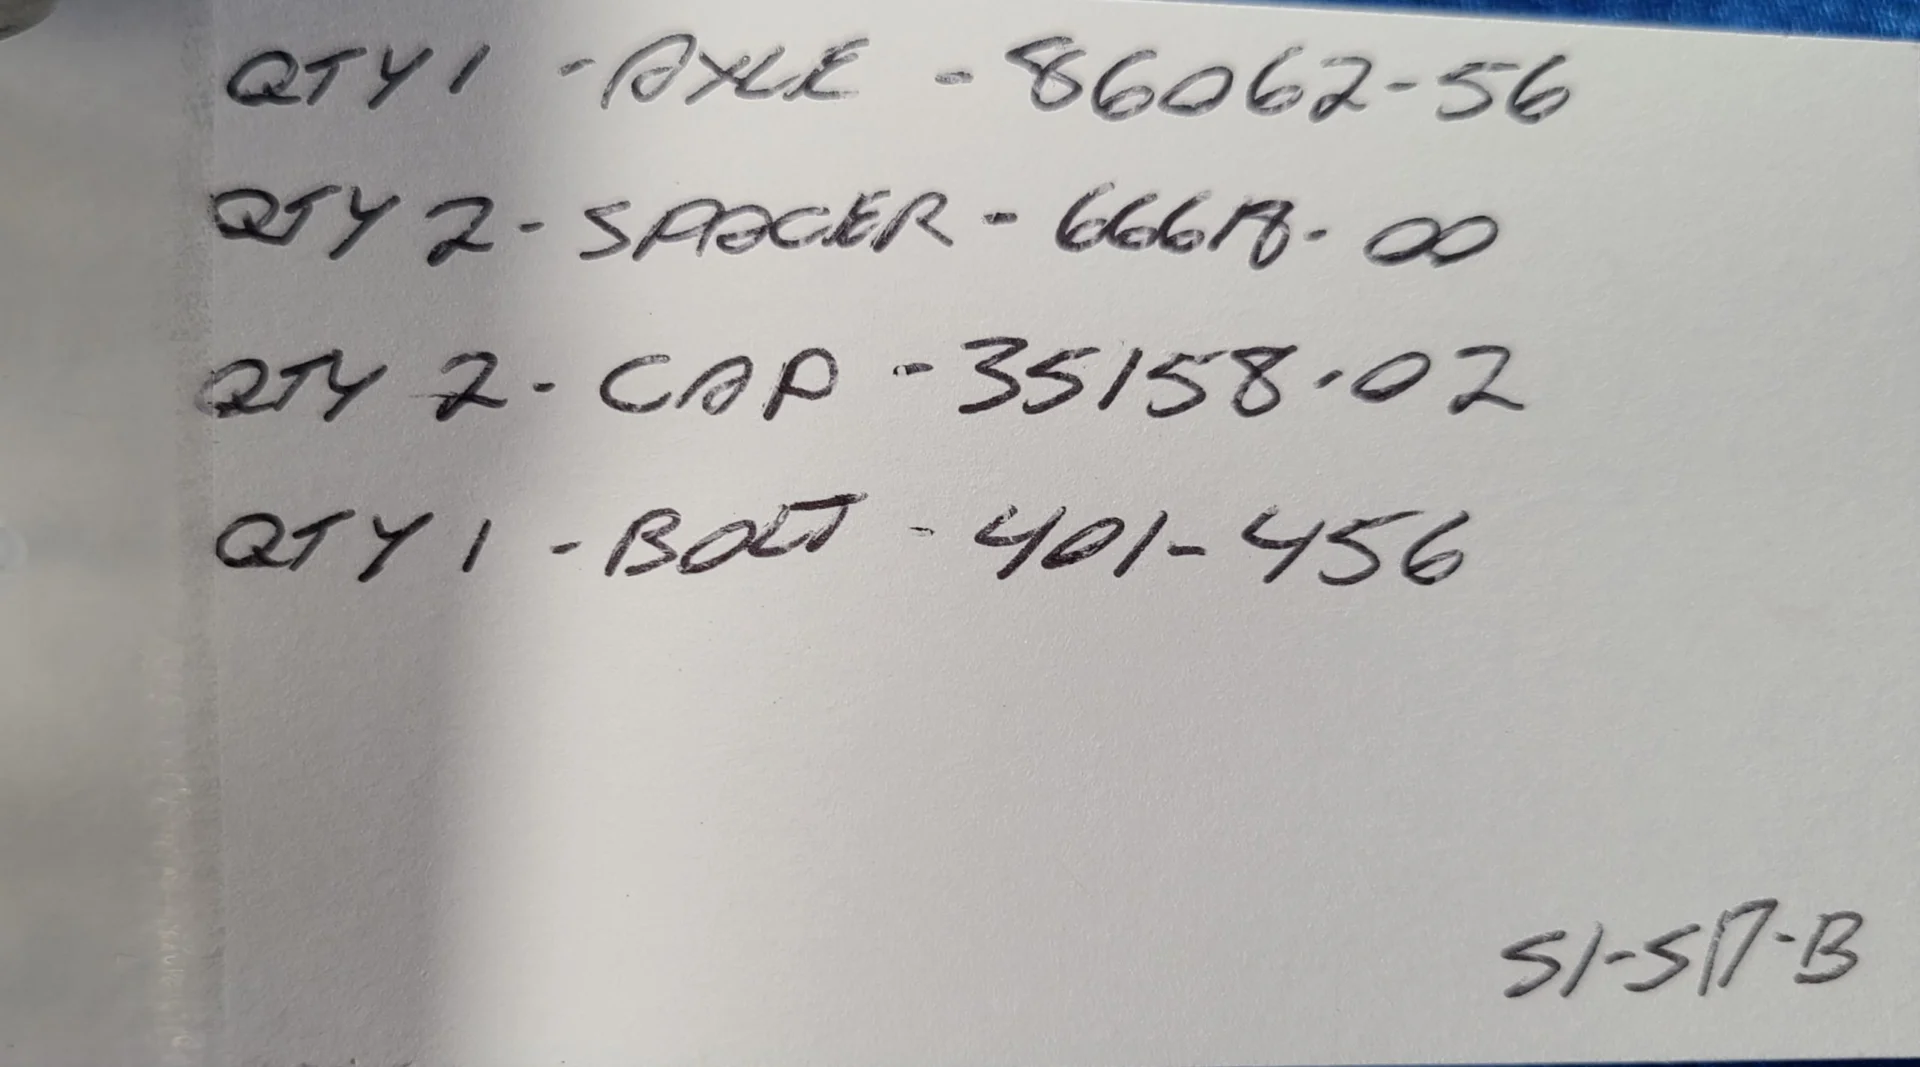 QTY 1 - AXLE - 86062-56
QTY 2 - SPACER - 66618-00
QTY 2 - CAP - 35158-02
QTY 1 - BOLT - 401-456
51-517-B